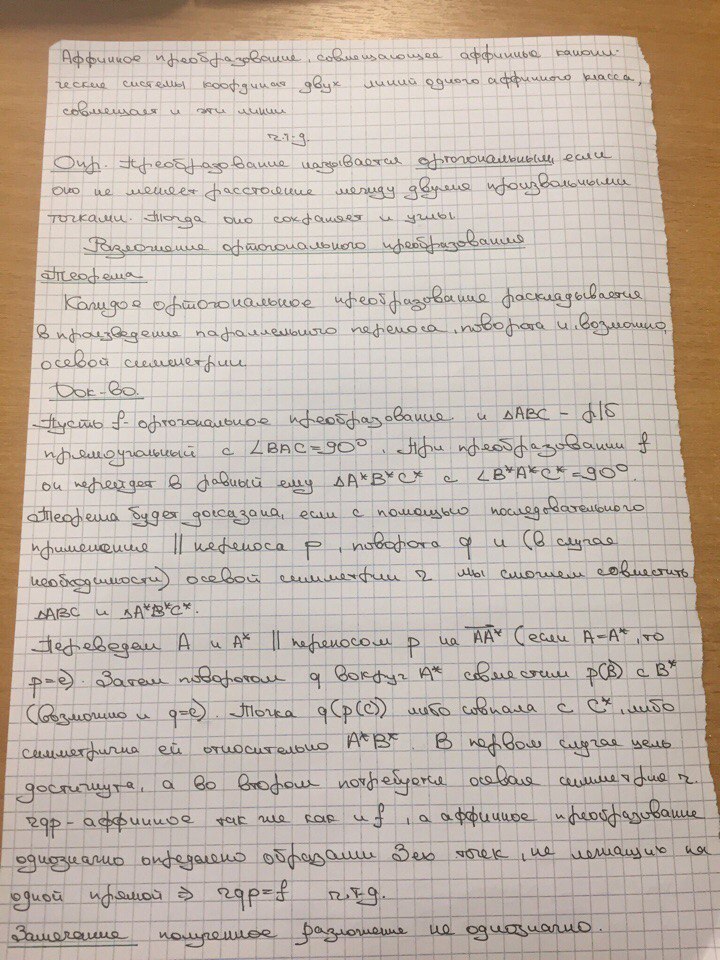 Аффинное преобразование, совмещающее аффинные канони-
ческие системы координат двух линий одного аффинного класса,
совмещает и эти линии
ч.т.д.
Опр. Преобразование называется ортогональным, если
оно не меняет расстояние между двумя произвольными
точками. Тогда оно сохраняет и углы
Разложение ортогонального преобразования
Теорема
Каждое ортогональное преобразование раскладывается
в произведение параллельного переноса, поворота и, возможно,
осевой симметрии
Док-во.
Пусть f - ортогональное преобразование и ΔABC - р/б
прямоугольный с ∠BAC=90°. При преобразовании f
он перейдет в равный ему ΔA*B*C* с ∠B*A*C*=90°.
Теорема будет доказана, если с помощью последовательного
применения || переноса p, поворота q и (в случае
необходимости) осевой симметрии r мы сможем совместить
ΔABC и ΔA*B*C*.
Переведем A и A* || переносом p на AA* (если A=A*, то
p=e). Затем поворотом q вокруг A* совместим p(B) с B*
(возможно и q=e). Точка q(p(C)) либо совпала с C*, либо
симметрична ей относительно A*B*. В первом случае цель
достигнута, а во втором потребуется осевая симметрия r.
rqp - аффинное так же как и f, а аффинное преобразование
однозначно определено образами 3ех точек, не лежащих на
одной прямой ⇒ rqp=f ч.т.д.
Замечание полученное разложение не однозначно.